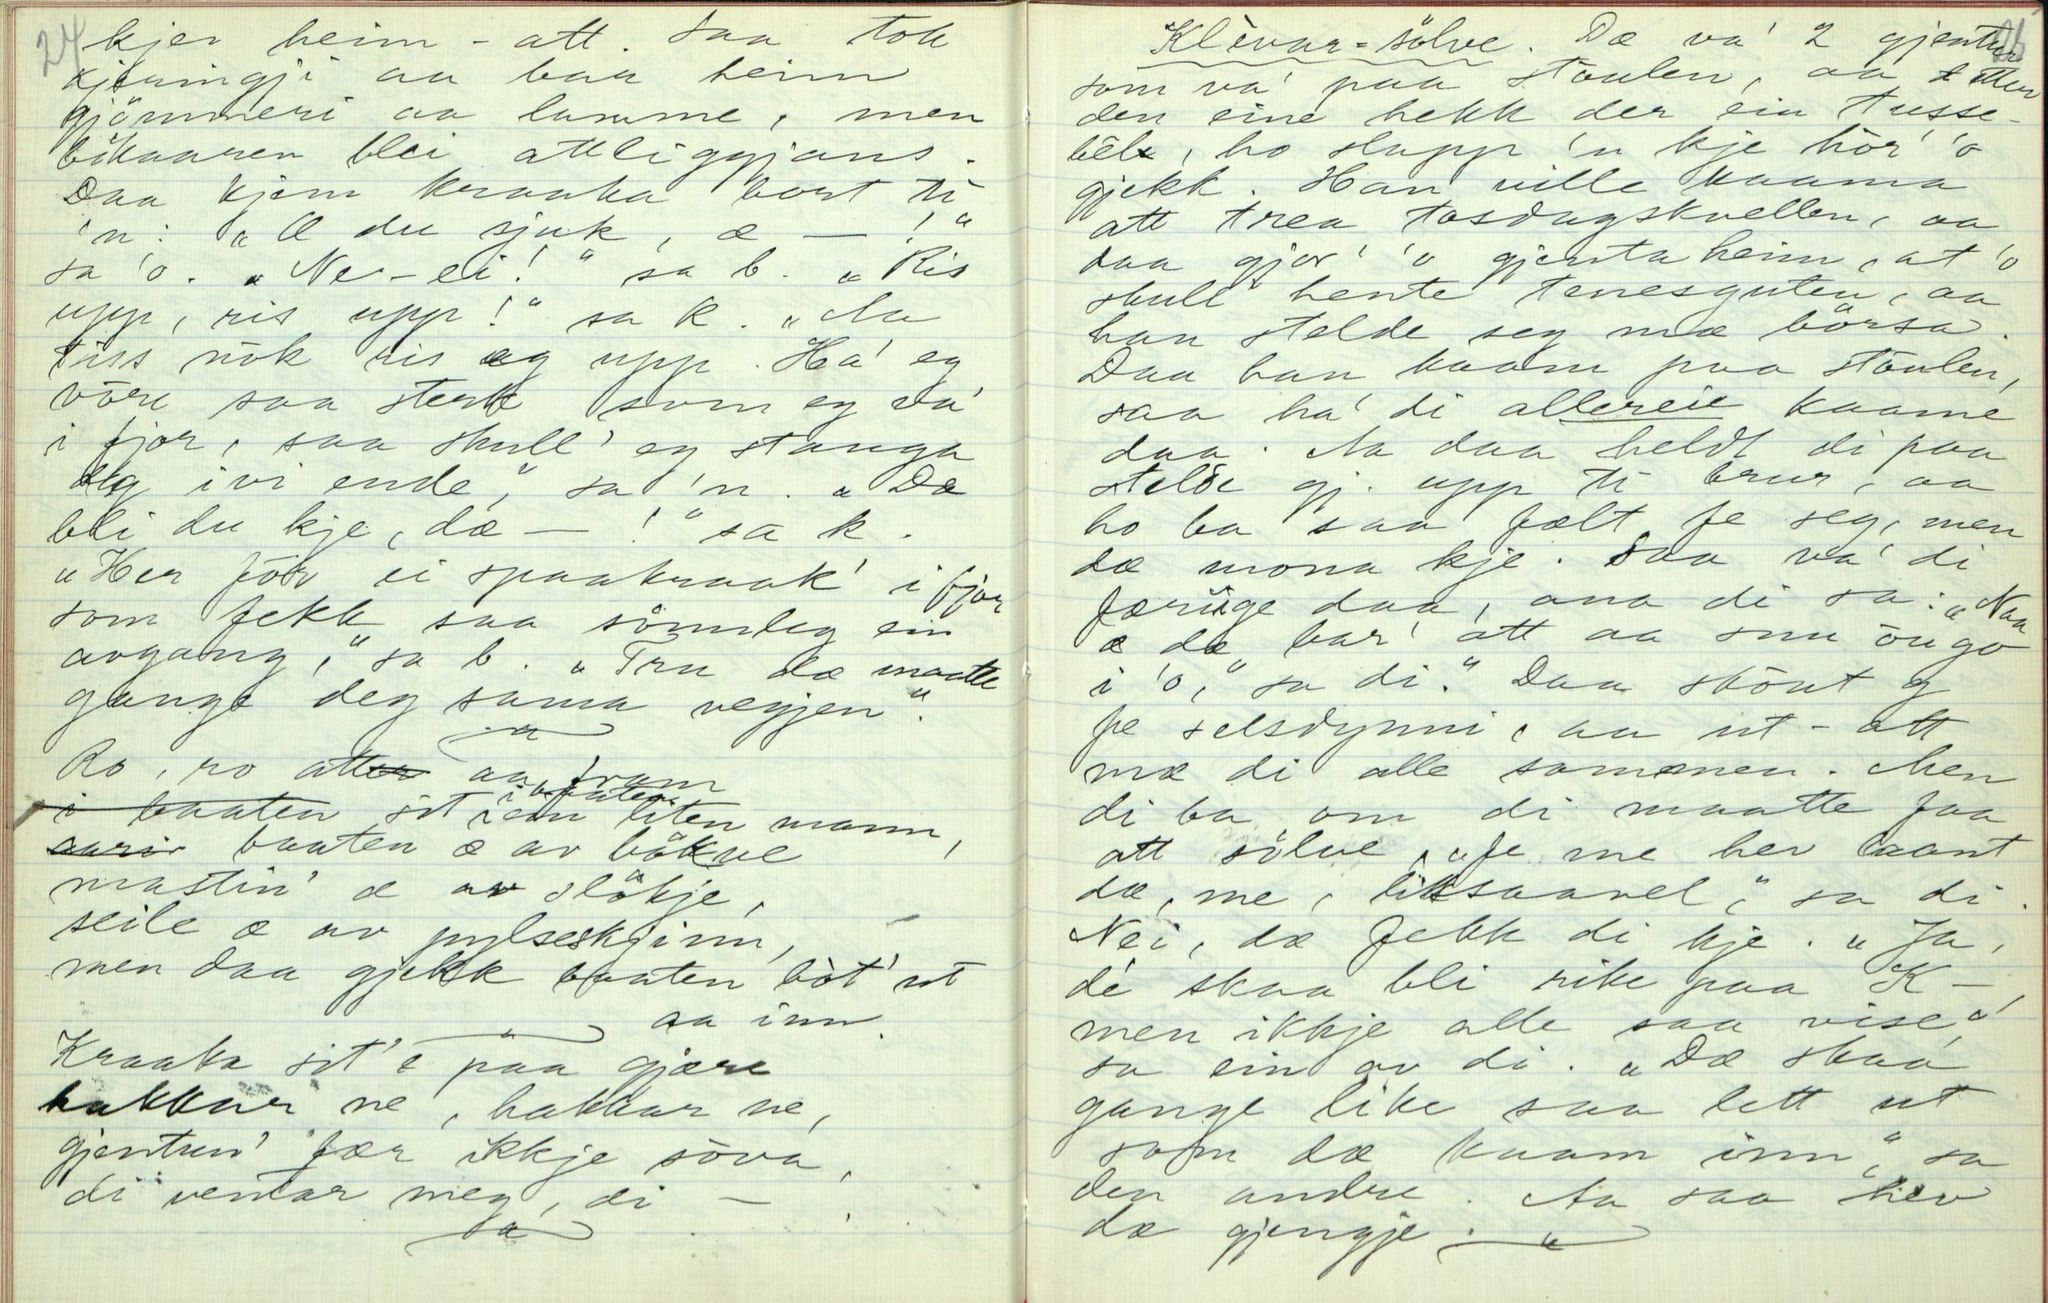 24
kjer heim-att. Saa tok
kjeringji aa baa heim
gjömmeri aa lamme, men
bökaaren blei attliggjans.
Daa kjem kraaka bort ti
'n: "Æ du sjuk, æ — !"
sa 'o. "Ne-ei!" sa b. "Ris
upp, ris upp!" sa k. "Aa
viss nök ris eg upp. Ha' eg
vöre saa sterk som eg va'
i fjor, saa skull' eg stanga
deg ivi ende", sa 'n. "Dæ
bli du kje, dæ — !" sa k.
"Her fór ei spaakraak' i fjor
som fekk saa sömmeleg ein
avgang," sa b. "Tru dæ maatte
gange deg sama vegjen".
Ro, ro atter aa fram
i baaten sit ein liten mann,
baaten æ av bökve
mastin' æ av slökje,
seile æ av pylseskjinn,
men daa gjekk baaten böt' ut
aa inn.
Kraaka sit'e paa gjære
hakkar ne, hakkar ne,
gjentun' fær ikkje söva,
di ventar meg, di — !
26
Klèvar-sölve. Dæ va' 2 gjentur
som va' paa stöulen, aa etter
den eine hekk der ein tusse-
bèle, ho slapp 'n kje hör' 'o
gjekk. Han ville kaama
att trea tosdagskvellen, aa
daa gjor' 'o gjenta heim, at 'o
skull' hente tenesguten, aa
han stelde seg mæ börsa.
Daa han kaam paa stöulen,
saa ha' di allereie kaame
daa. Aa daa heldt di paa
stelde gj. upp ti brur, aa
ho ba saa fælt fe seg, men
dæ mona kje. Saa va' di
færuige daa, ana di sa: "Naa
æ dæ bar' att aa snu öugo
i 'o," sa di." Daa sköut g
fe selsdynni, aa ut-att
mæ di alle sammen. Men
di ba om di maatte faa
att sölve, "fe me hev laant
dæ, me, liksaavel," sa di.
Nei, dæ fekk di kje. "Ja,
dè skaa bli rike paa K —,
men ikkje alle saa vise,"
sa ein av di. "Dæ skaa
gange like saa lett ut
som dæ kaam inn," sa
den andre. Aa saa hev
dæ gjengje.